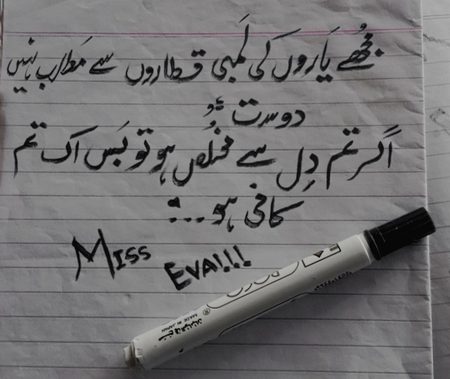 مجھے یاروں کی لمبی قطاروں سے مطلب نہیں
دوست
اگر تم دِل سے مخلص ہو تو بَس اک تم
کافی ہو ...!
Miss
Eva!!!